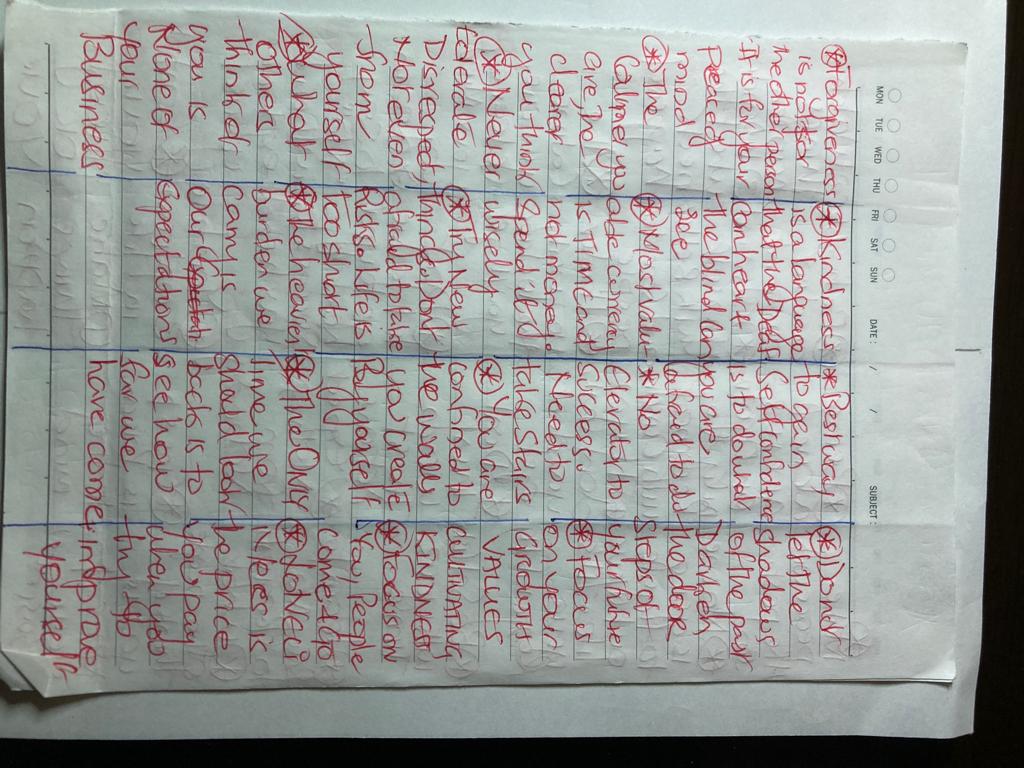 MON TUE WED THU FRI SAT SUN DATE : / / SUBJECT :
* Forgiveness
is not for
the other person
It is for your
peace of
mind
* The
Calmer you
are, the
clearer
you think
* Never
tolerate
Disrespect,
Not even
from
yourself
* What
others
think of
you is
None of
your
Business
* Kindness
is a language
that the Deaf
can heart
the blind Can
See
* Most valu-
able currency
is TIME and
not money.
Spend it
wisely
* Try New
things. Dont
afraid to take
Risks. Life is
too short
* The heaviest
burden we
carry is
Our
Expectations
* Best way
to gain
Self confidence
is to do what
you are
afraid to do
* No
Elevator to
Success.
Need to
take Stairs
* You are
confined to
the walls
you create
By yourself
* The ONLY
Time we
should look
back is to
see how
far we
have come
* Do not
let the
shadows
of the past
Darken
the door
steps of
your future
* Focus
on your
GROWTH
VALUES
CULTIVATING
KINDNESS
* Focus on
You, People
come & Go
* LONELI
Ness is
the price
you pay
when you
try to
improve
yourself